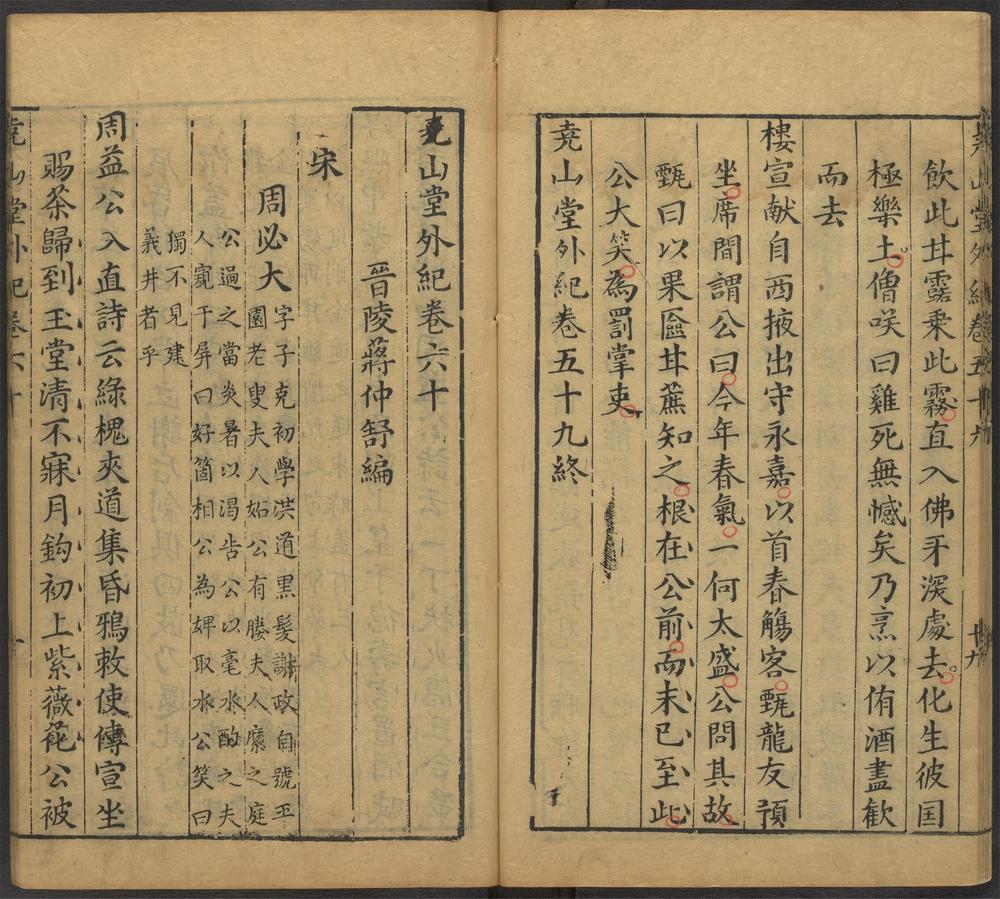 飲此甘露乗此霧直入佛牙深處去化生彼国
極樂土僧咲曰雞死無憾矣乃烹以侑酒盡歡
而去
樓宣献自西掖出守永嘉以首春觴客甄龍友預
坐席間謂公曰今年春氣一何太盛公問其故
甄曰以果匳甘蔗知之根在公前而末已至此
公大笑為罰掌吏
尭山堂外紀卷五十九終
尭山堂外紀卷六十
晉陵蔣仲舒編
宋
周必大字子克初學洪道黒髮謝政自號平
園老叟夫人妬公有媵夫人縻之庭
公過之當炎暑以渴告公以毫水酌之夫
人窺于屏曰好箇相公為婢取水公笑曰
獨不見建
義井者乎
周益公入直詩云綠槐夾道集昏鴉敕使傳宣坐
賜茶歸到玉堂清不寐月鈎初上紫薇花公被
尭山堂外紀卷六十